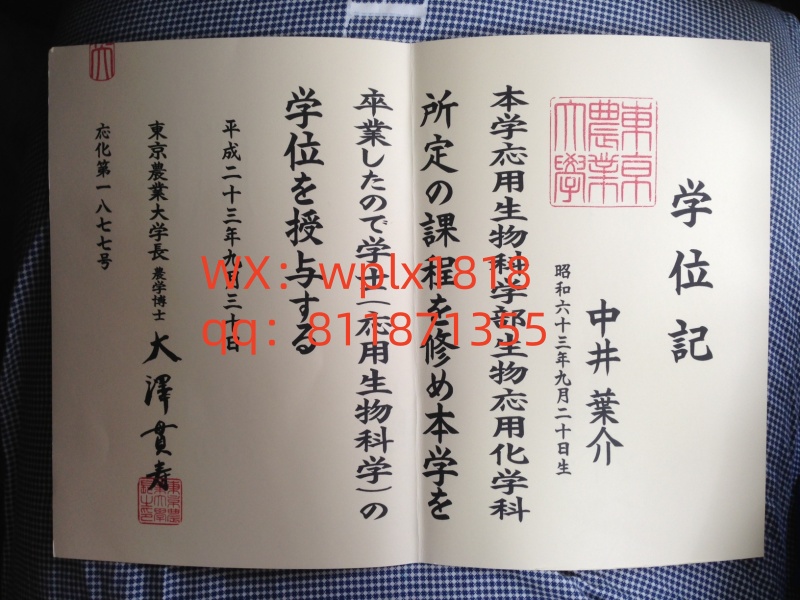 学位記
中井葉介
昭和六十三年九月二十日生
東京
農業
大學
本学応用生物科学部生物応用化学科
所定の課程を修め本学を
卒業したので学士(応用生物科学)の
学位を授与する
平成二十三年九月三十日
東京農業大学長 農学博士 大澤貫寿
応化第一八七七号
WX：wplx1818
qq：811871355